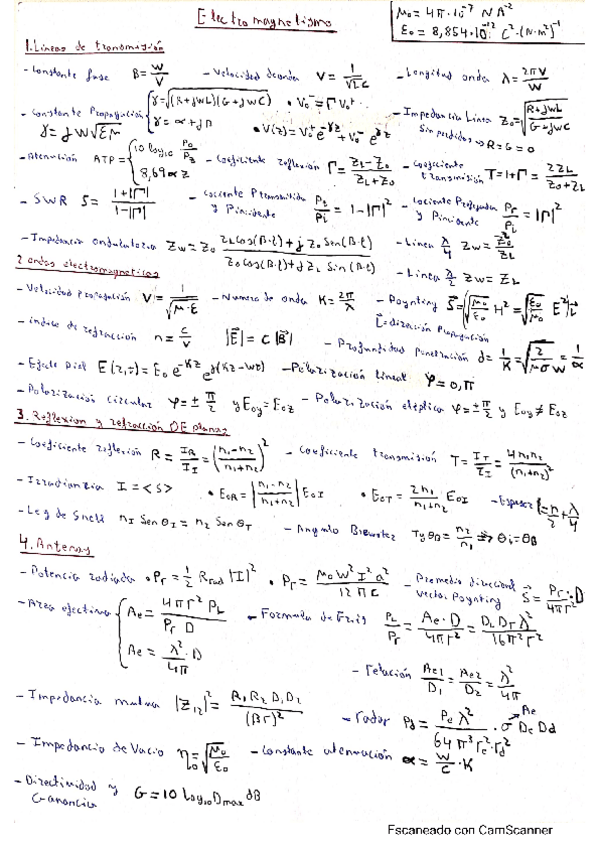 Electromagnetismo
μ₀ = 4π·10⁻⁷ N A⁻²
ε₀ = 8,854·10⁻¹² C²·(N·m²)⁻¹
1. Lineas de transmisión
- Constante fase B = W/V - Velocidad de onda V = 1/√(LC) - Longitud onda λ = 2πV/W
- Constante Propagación { γ = √((R+jWL)(G+jWC)) γ = α + jβ • V₀⁻ = Γ V₀⁺ - Impedancia Linea Z₀ = √((R+jWL)/(G+jWC))
Sin perdidas → R = G = 0
γ = jW√εμ • V(z) = V₀⁺ e^(-γz) + V₀⁻ e^(γz)
- Atenuación ATP = { 10 log₁₀ P₀/Pz 8,69 α z - Coeficiente reflexión Γ = (ZL - Z₀)/(ZL + Z₀) - Coeficiente transmisión T = 1 + Γ = 2ZL/(Z₀+ZL)
- SWR S = (1+|Γ|)/(1-|Γ|) - Cociente Ptransmitida y Pincidente Pt/Pi = 1 - |Γ|² - Cociente Preflejada y Pincidente Pr/Pi = |Γ|²
- Impedancia ondulatoria Zw = Z₀ (ZL Cos(B·l) + j Z₀ Sen(B·l))/(Z₀ Cos(B·l) + j ZL Sin(B·l)) - Linea λ/4 Zw = Z₀²/ZL
- Linea λ/2 Zw = ZL
2 ondas electromagneticas
- Velocidad propagación V = 1/√(μ·ε) - Numero de onda K = 2π/λ - Poynting S = √(μ₀/ε₀) H² = √(ε₀/μ₀) E²
dirección Propagación
- indice de refracción n = c/v |E| = c |B| - Profundidad penetración d = 1/K = √(2/(μσW)) = 1/α
- E(z,t) = E₀ e^(-Kz) e^(j(Kz-Wt)) - Polarización lineal φ = 0, π
- Polarización circular φ = ± π/2 y Eoy = Eoz - Polarización eliptica φ = ± π/2 y Eoy ≠ Eoz
3. Reflexion y refracción DE planas
- Coeficiente reflexión R = IR/II = ((n₁-n₂)/(n₁+n₂))² - Coeficiente transmisión T = IT/II = 4n₁n₂/(n₁+n₂)²
- Irradiancia I = <S> • EoR = |(n₁-n₂)/(n₁+n₂)| EoI • EoT = 2n₁/(n₁+n₂) EoI - Espesor
- Ley de Snell n₁ Sen θI = n₂ Sen θT - Angulo Brewster Tg θB = n₂/n₁ ⇒ θi = θB
4. Antenas
- Potencia radiada • Pr = 1/2 Rrad |I|² • Pr = μ₀W²I²a²/(12πc) - Promedio direccional vector Poynting S = Pr·D/(4πr²)
- Area efectiva { Ae = 4πr²PL/(Pr D) Ae = λ²/4π · D - Formula de Friis PL/Pr = Ae·D/(4πr²) = DL DT λ²/(16π²r²)
- relación Ae1/D₁ = Ae2/D₂ = λ²/4π
- Impedancia mutua |Z₁₂|² = R₁R₂D₁D₂/(βr)² - radar Pd = Pe λ²/(64π³re²·rd²) · σ De Dd
Ae
- Impedancia de Vacio η₀ = √(μ₀/ε₀) - Constante atenuación α = W/C · K
- Directividad y Ganancia G = 10 log₁₀ Dmax dB
Escaneado con CamScanner